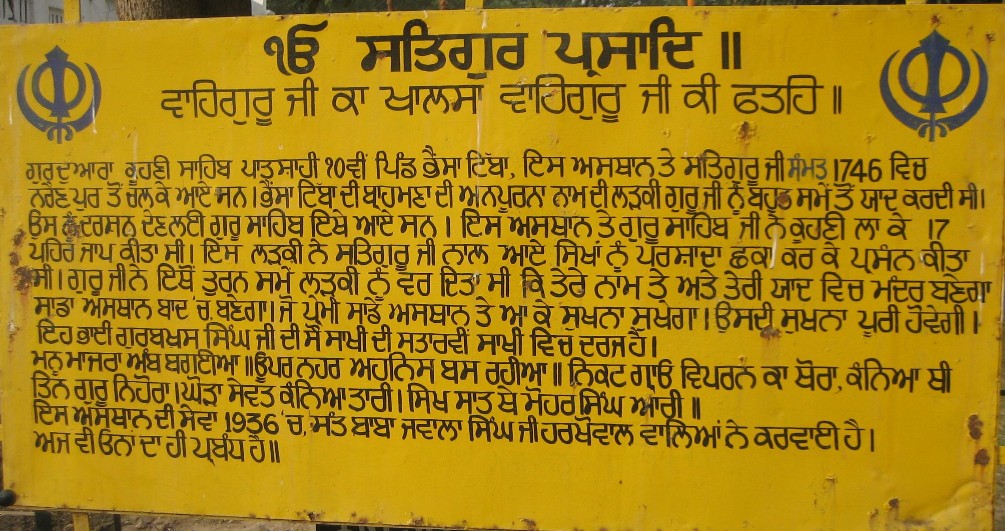 ੴ ਸਤਿਗੁਰ ਪ੍ਰਸਾਦਿ ॥
ਵਾਹਿਗੁਰੂ ਜੀ ਕਾ ਖਾਲਸਾ ਵਾਹਿਗੁਰੂ ਜੀ ਕੀ ਫਤਹਿ ॥
ਗੁਰਦੁਆਰਾ ਕੂਹਣੀ ਸਾਹਿਬ ਪਾਤਸ਼ਾਹੀ ੧੦ਵੀਂ ਪਿੰਡ ਭੈਂਸਾ ਟਿੱਬਾ, ਇਸ ਅਸਥਾਨ ਤੇ ਸਤਿਗੁਰੂ ਜੀ ਸੰਮਤ 1746 ਵਿਚ
ਨਰੈਣਪੁਰ ਤੋਂ ਚਲਕੇ ਆਏ ਸਨ। ਭੈਂਸਾ ਟਿੱਬਾ ਦੀ ਬਾਹਮਣਾ ਦੀ ਅਨਪੂਰਨਾ ਨਾਮ ਦੀ ਲੜਕੀ ਗੁਰੂ ਜੀ ਨੂੰ ਬਹੁਤ ਸਮੇਂ ਤੋਂ ਯਾਦ ਕਰਦੀ ਸੀ।
ਉਸ ਨੂੰ ਦਰਸ਼ਨ ਦੇਣ ਲਈ ਗੁਰੂ ਸਾਹਿਬ ਇਥੇ ਆਏ ਸਨ । ਇਸ ਅਸਥਾਨ ਤੇ ਗੁਰੂ ਸਾਹਿਬ ਜੀ ਨੇ ਕੂਹਣੀ ਲਾ ਕੇ 17
ਪਹਿਰ ਜਾਪ ਕੀਤਾ ਸੀ। ਇਸ ਲੜਕੀ ਨੇ ਸਤਿਗੁਰੂ ਜੀ ਨਾਲ ਆਏ ਸਿਖਾਂ ਨੂੰ ਪਰਸ਼ਾਦਾ ਛਕਾ ਕਰ ਕੇ ਪ੍ਰਸੰਨ ਕੀਤਾ
ਸੀ। ਗੁਰੂ ਜੀ ਨੇ ਇਥੋਂ ਤੁਰਨ ਸਮੇਂ ਲੜਕੀ ਨੂੰ ਵਰ ਦਿਤਾ ਸੀ ਕਿ ਤੇਰੇ ਨਾਮ ਤੇ ਅਤੇ ਤੇਰੀ ਯਾਦ ਵਿਚ ਮੰਦਰ ਬਣੇਗਾ
ਸਾਡਾ ਅਸਥਾਨ ਬਾਦ 'ਚ ਬਣੇਗਾ। ਜੋ ਪ੍ਰੇਮੀ ਸਾਡੇ ਅਸਥਾਨ ਤੇ ਆ ਕੇ ਸੁਖਨਾ ਸੁਖੇਗਾ। ਉਸਦੀ ਸੁਖਨਾ ਪੂਰੀ ਹੋਵੇਗੀ।
ਇਹ ਭਾਈ ਗੁਰਬਖਸ ਸਿੰਘ ਜੀ ਦੀ ਸੌ ਸਾਖੀ ਦੀ ਸਤਾਰਵੀਂ ਸਾਖੀ ਵਿਚ ਦਰਜ ਹੈ।
ਮਨੁ ਮਾਜਰਾ ਅੰਬ ਬਗਈਆ ॥ ਊਪਰ ਨਹਰ ਅਹਨਿਸ ਬਸ ਰਹੀਆ॥ ਨਿਕਟ ਗ੍ਰਾਓਂ ਵਿਪਰਨ ਕਾ ਥੋਰਾ, ਕੰਨਿਆ ਥੀ
ਤਿਨ ਗੁਰੂ ਨਿਹੋਰਾ। ਘੋੜਾ ਸੇਵਤ ਕੰਨਿਆ ਤਾਰੀ। ਸਿਖ ਸਾਤ ਥੇ ਮੋਹਰ ਸਿੰਘ ਆਰੀ ॥
ਇਸ ਅਸਥਾਨ ਦੀ ਸੇਵਾ 1936 'ਚ, ਸੰਤ ਬਾਬਾ ਜਵਾਲਾ ਸਿੰਘ ਜੀ ਹਰਖੋਵਾਲ ਵਾਲਿਆਂ ਨੇ ਕਰਵਾਈ ਹੈ।
ਅਜ ਵੀ ਓਨਾ ਦਾ ਹੀ ਪ੍ਰਬੰਧ ਹੈ॥